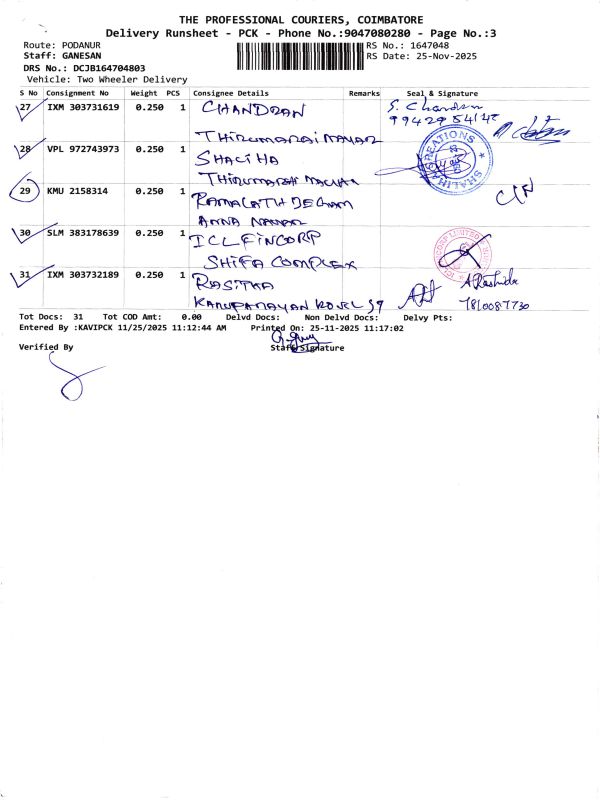 THE PROFESSIONAL COURIERS, COIMBATORE
Delivery Runsheet - PCK - Phone No.:9047080280 - Page No.:3
Route: PODANUR RS No.: 1647048
Staff: GANESAN RS Date: 25-Nov-2025
DRS No.: DCJB164704803
Vehicle: Two Wheeler Delivery
S No Consignment No Weight PCS Consignee Details Remarks Seal & Signature
27 IXM 303731619 0.250 1 CHANDRAN S. Chandran
THIRUMARAI NAGAR
28 VPL 972743973 0.250 1 SHALIHA SHALIMAR CREATIONS
THIRUMARAI NAGAR
29 KMU 2158314 0.250 1 RAMALATH BEGHAM
ANNA NAGAR
30 SLM 383178639 0.250 1 ICL FINCORP
SHIFA COMPLEX
31 IXM 303732189 0.250 1 A Rashida
7810087730
Tot Docs: 31 Tot COD Amt: 0.00 Delvd Docs: Non Delvd Docs: Delvy Pts:
Entered By :KAVIPCK 11/25/2025 11:12:44 AM Printed On: 25-11-2025 11:17:02
Verified By Staff Signature